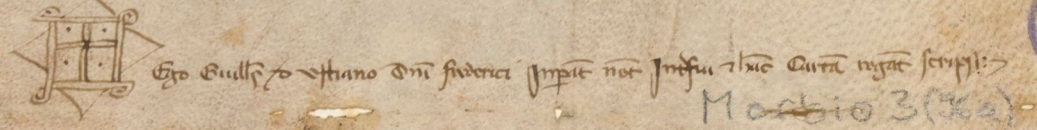 Ego Guillẽ de ustiano Dñi frederici Inꝑat̃ not̃ Int̃fui ⁊ hãc Cartã rogat̃ scripsi
Morbio 3 (36a)